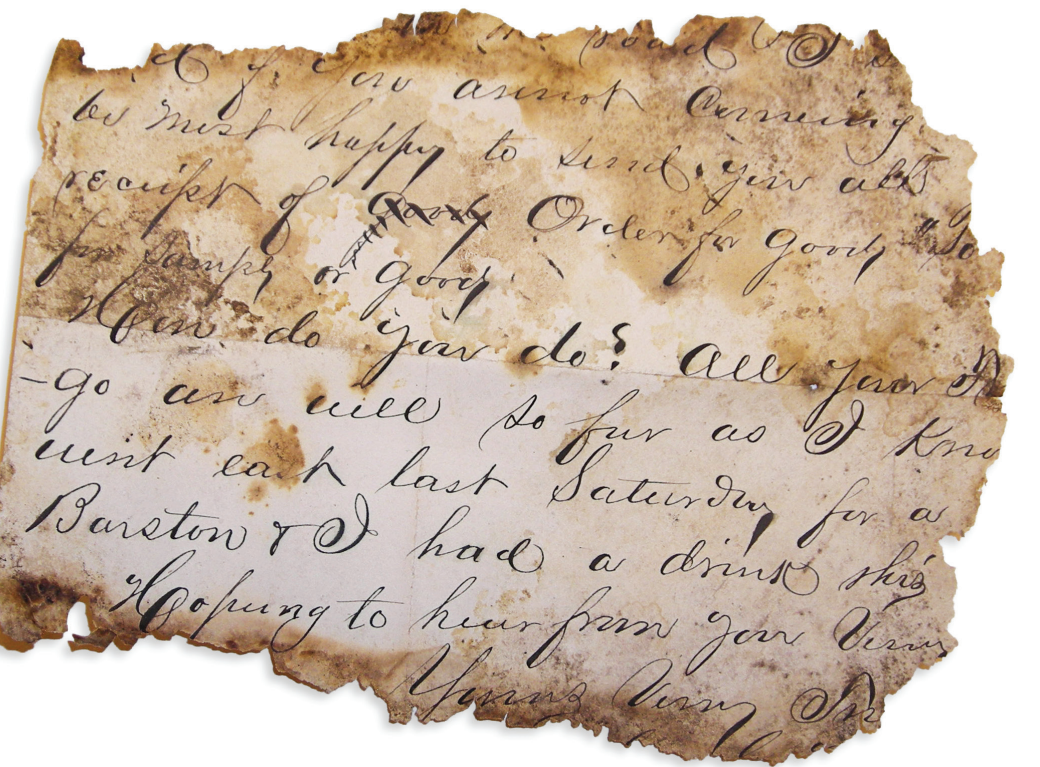 road & I
if you cannot Comeing
be most happy to send you all
receipt of Goods Order for Goods
for Samps or Goods
How do you do? All your
-go an well so far as I Kno
went east last Saturday for a
Barston & I had a drink this
Hopeing to hear from you Very
Yours Very Tr